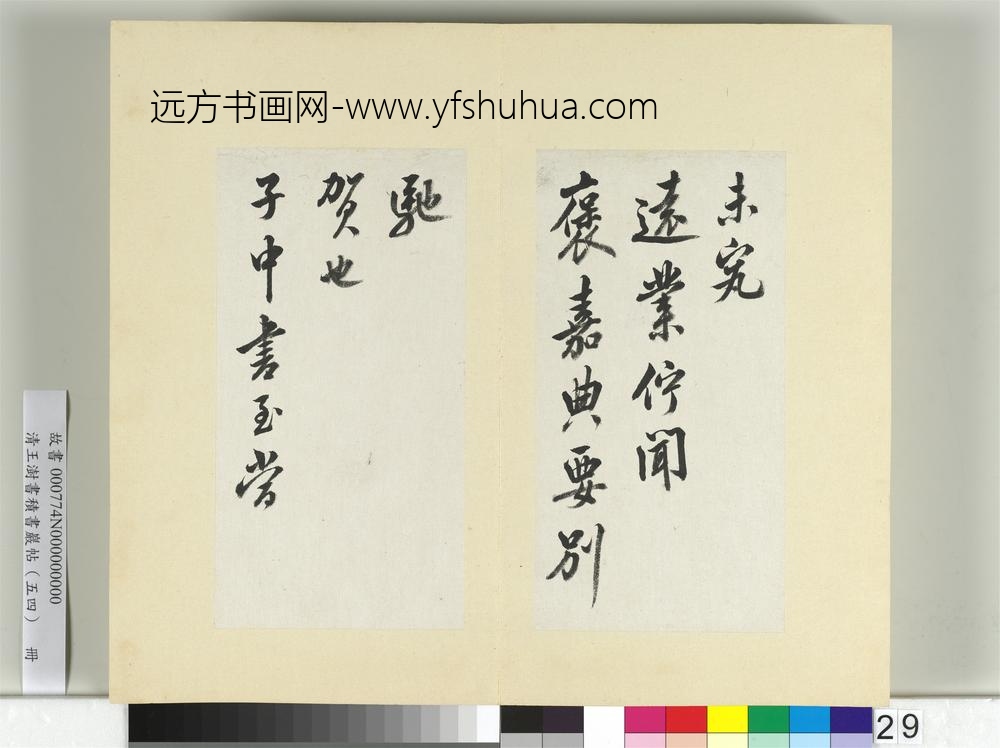 远方书画网-www.yfshuhua.com
未究
遠業佇聞
褒嘉典要別
馳
賀也
子中書至當
故書 000774N000000000
清王澍書積書巖帖（五四） 冊
29